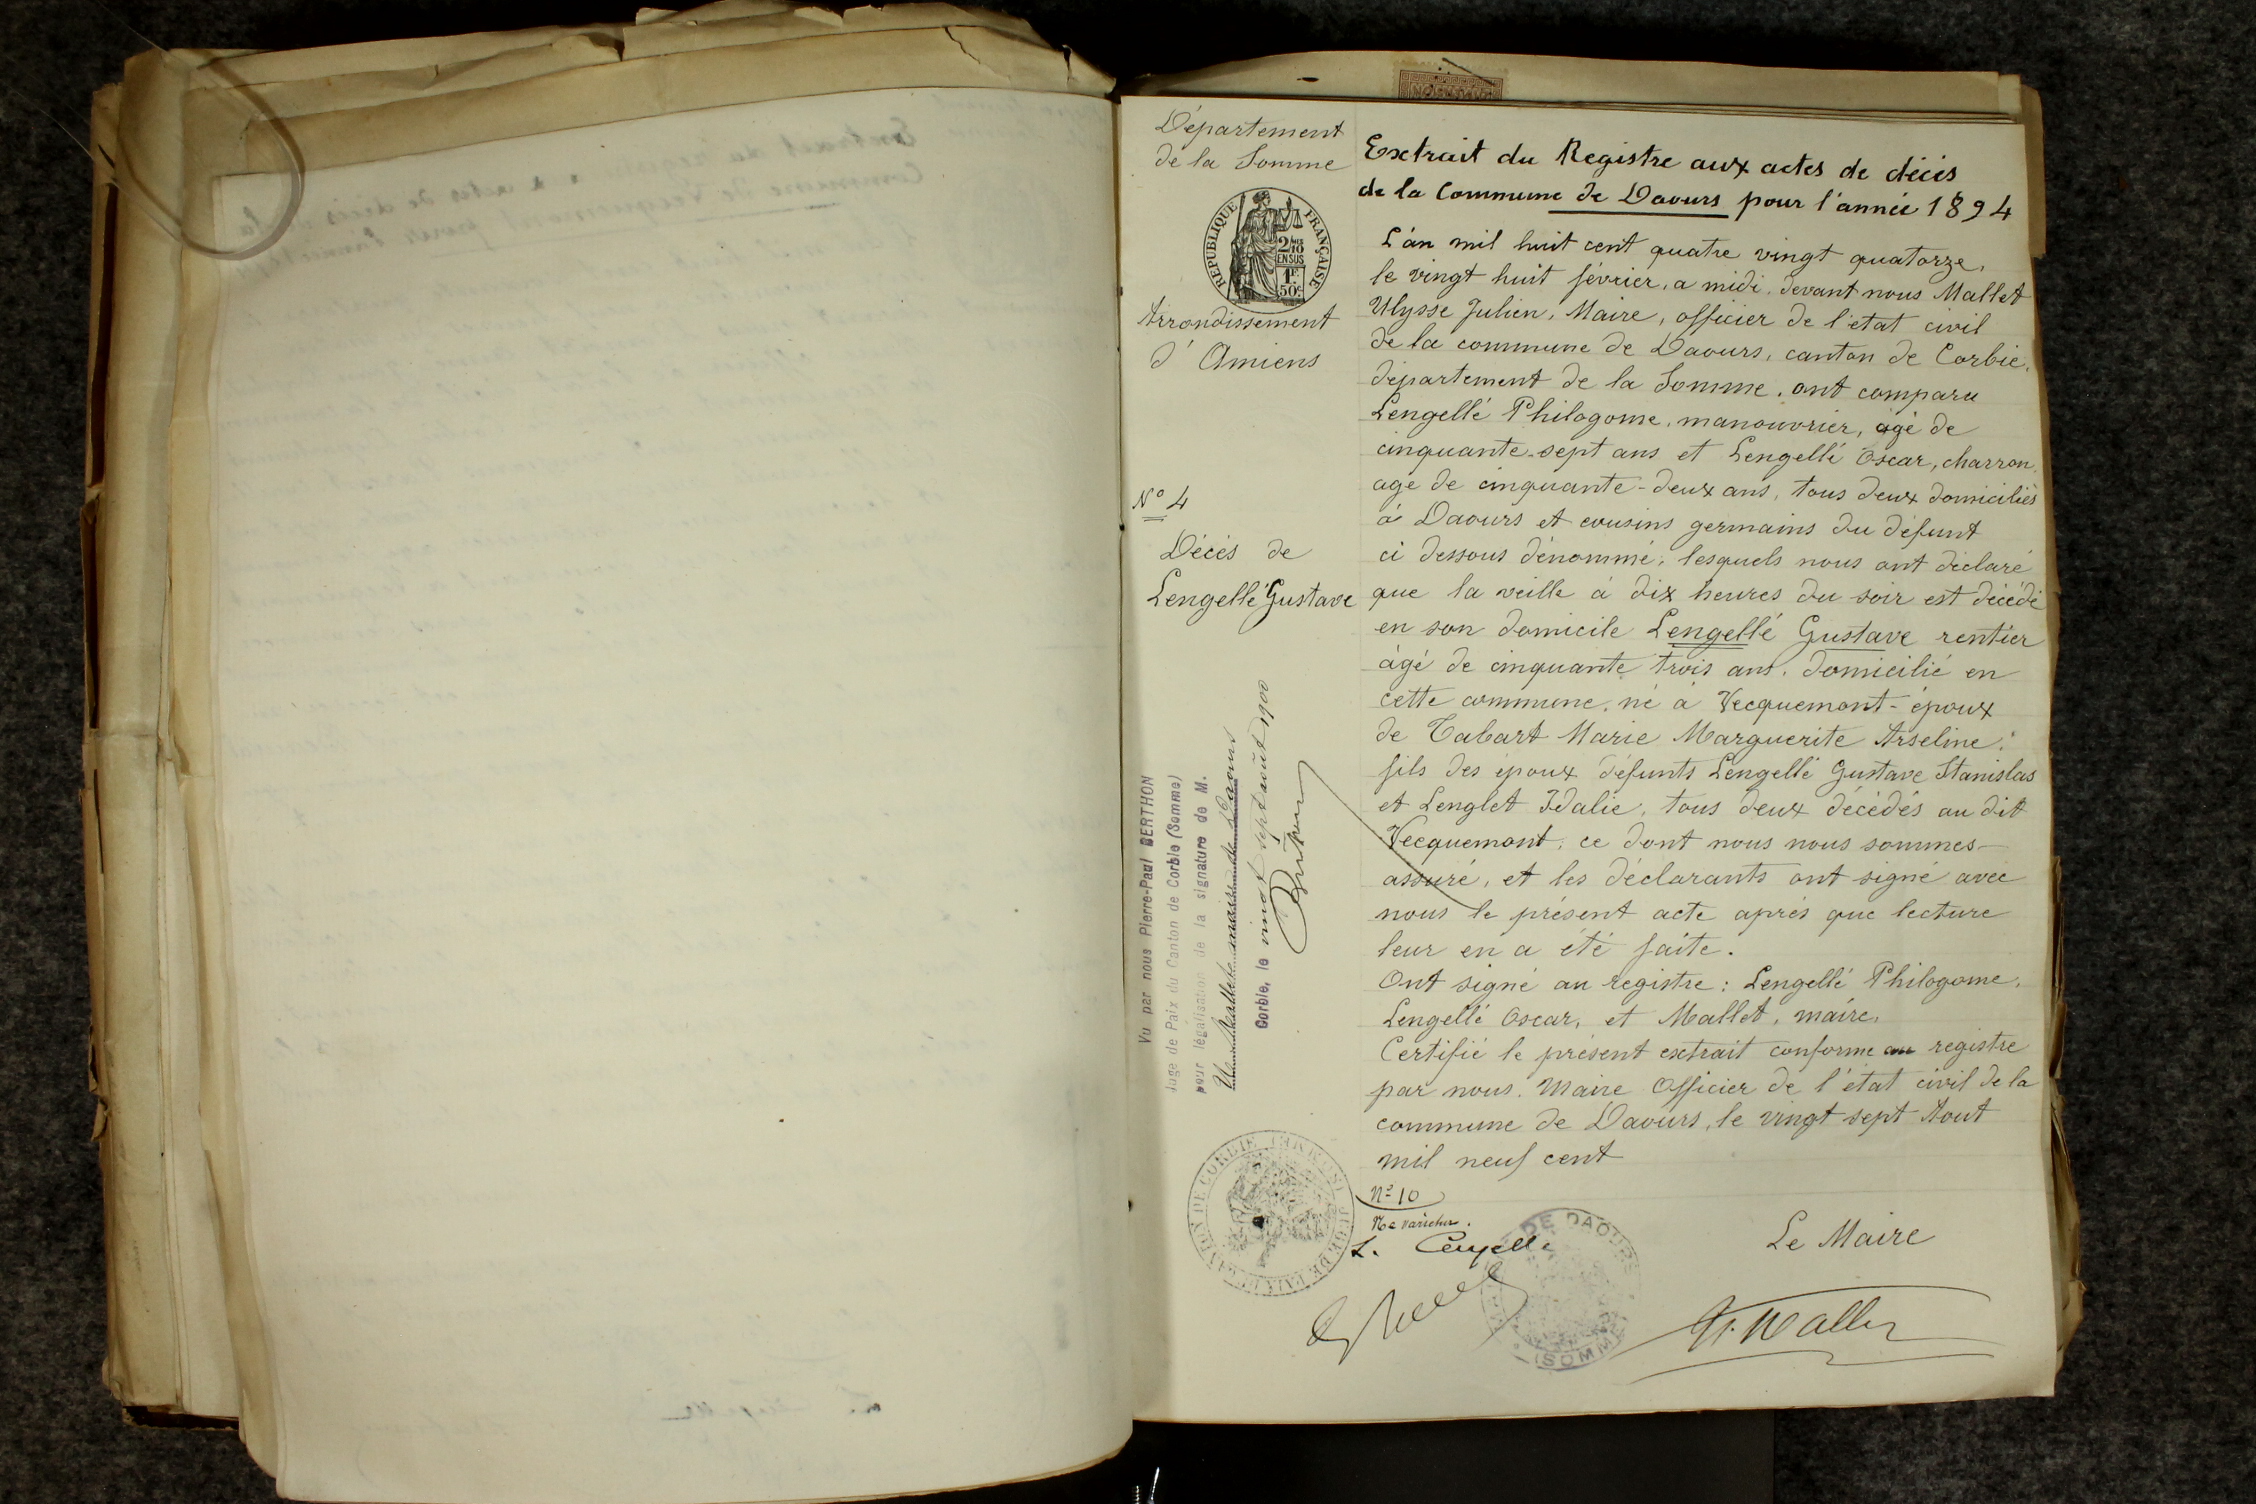 Département
de la Somme
REPUBLIQUE FRANÇAISE
2/10
EN SUS
1F.
50c
Arrondissement
d'Amiens
N° 4
Décès de
Lengellé Gustave
Extrait du Registre aux actes de décès
de la Commune de Daours pour l'année 1894
L'an mil huit cent quatre vingt quatorze,
le vingt huit février, a midi, devant nous Mallet
Ulysse Julien, Maire, officier de l'état civil
de la commune de Daours, canton de Corbie,
département de la Somme, ont comparu
Lengellé Philogome, manouvrier, âgé de
cinquante-sept ans et Lengellé Oscar, charron,
age de cinquante-deux ans, tous deux domiciliés
à Daours et cousins germains du défunt
ci dessous dénommé; lesquels nous ont déclaré
que la veille à dix heures du soir est décédé
en son domicile Lengellé Gustave rentier
âgé de cinquante trois ans, domicilié en
cette commune, né à Vecquemont - époux
de Tabart Marie Marguerite Arseline;
fils des époux défunts Lengellé Gustave Stanislas
et Lenglet Idalie, tous deux décédés au dit
Vecquemont, ce dont nous nous sommes
assuré, et les déclarants ont signé avec
nous le présent acte après que lecture
leur en a été faite.
Ont signé au registre : Lengellé Philogome,
Lengellé Oscar, et Mallet, maire.
Certifié le présent extrait conforme au registre
par nous, Maire Officier de l'état civil de la
commune de Daours, le vingt sept Aout
mil neuf cent
N° 10
Ne varietur.
L. Lengellé
Le Maire
DE DAOURS
(SOMME)
Vu par nous Pierre-Paul BERTHON
Juge de Paix du Canton de Corbie (Somme)
pour légalisation de la signature de M.
Mallet maire de Daours
Corbie, le vingt sept août 1900
Berthon
CANTON DE CORBIE
JUGE DE PAIX